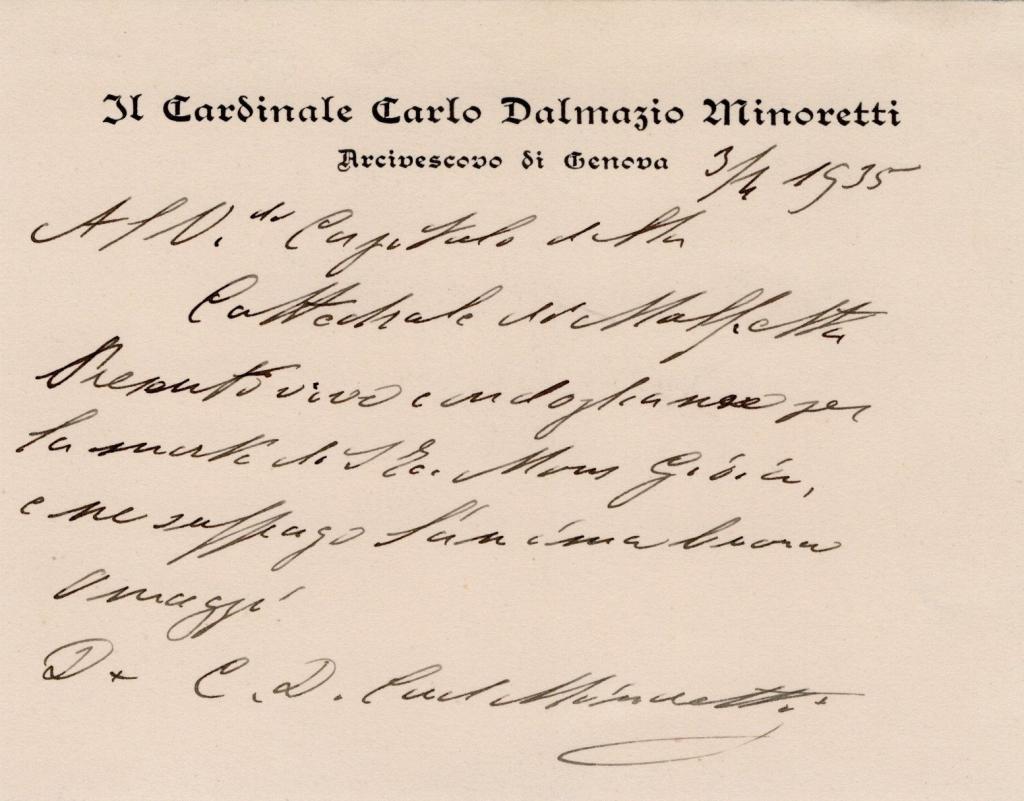 Il Cardinale Carlo Dalmazio Minoretti
Arcivescovo di Genova
3/4 1935
Al V.do Capitolo della
Cattedrale di Molfetta
Presento vivo condoglianze per
la morte di S Ec. Mons Gioia,
e ne suffrago l'anima buona
Omaggi
C. D. Card Minoretti